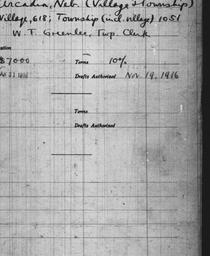 Arcadia, Neb. (Village & Township)
Village, 618; Township (incl. village) 1051
W. T. Greenlee, Twp. Clerk
$7000 Terms 10%
Drafts Authorized Nov. 19, 1916
Terms
Drafts Authorized